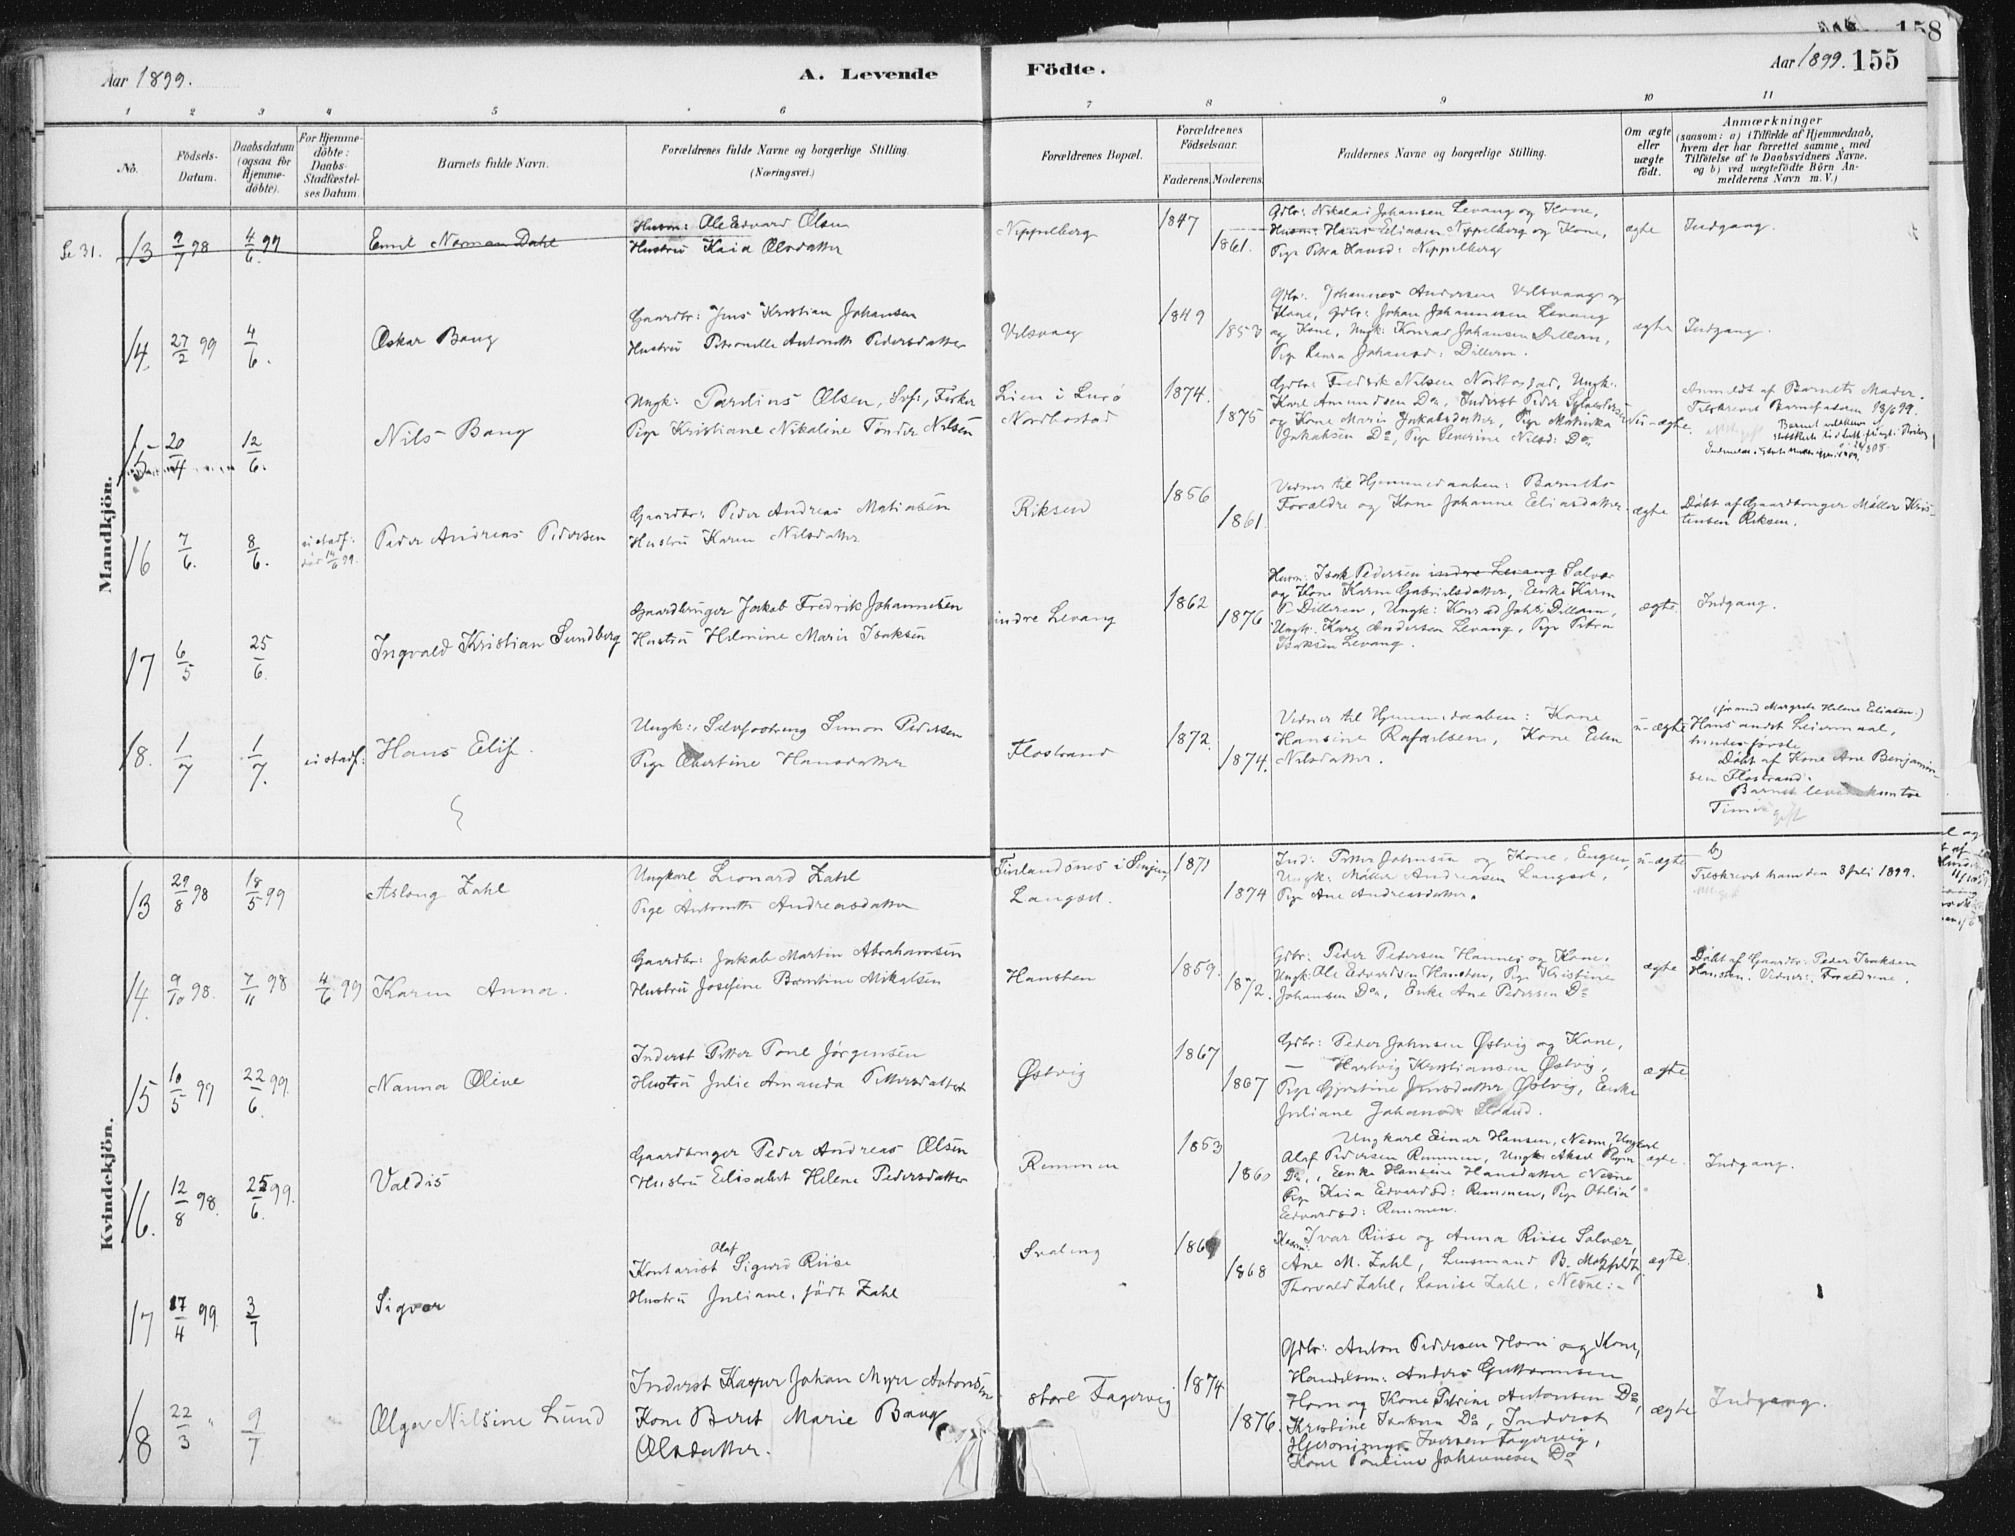 158
Aar 1899.
A. Levende
Födte.
Aar 1899. 155
1 2 3 4 5 6 7 8 9 10 11
No.
Födsels-
Datum.
Daabsdatum
(ogsaa for
Hjemme-
döbte).
For Hjemme-
döbte:
Daabs-
Stadfæstel-
ses Datum.
Barnets fulde Navn.
Forældrenes fulde Navne og borgerlige Stilling.
(Næringsvei.)
Forældrenes Bopæl.
Forældrenes
Födselsaar.
Faderens. Moderens.
Faddernes Navne og borgerlige Stilling.
Om ægte
eller
uægte
födt.
Anmærkninger
(saasom: a) i Tilfælde af Hjemmedaab,
hvem der har forrettet samme, med
Tilföielse af to Daabsvidners Navne,
og b) ved uægtefödte Börn An-
melderens Navn m. V.)
Mandkjön.
Se 31. 13 9/7 98 4/6 99 Emil Norman Dahl
Husm: Ole Edvard Olsen
Hustru Kaia Olsdatter
Nippelberg
1847
1861.
Gdbr: Nikolai Johansen Levang og Kone,
Husm: Hans Eliasen Nippelberg og Kone,
Pige Petra Hansd: Nippelberg
ægte
Indgang.
14. 27/2 99 4/6. Oskar Bang
Gaardbr: Jens Kristian Johansen
Hustru Petronelle Antonette Pedersdatter
Vilsvaag
1849
1853
Gdbr: Johannes Andersen Vilsvaag og
Kone, Gdbr: Johan Johannesen Levang
og Kone, Ungk: Konrad Johansen Dillern,
Pige Lenra Johansd: Dillern.
ægte
Indgang.
15 20/4 12/6. Nils Bang
Ungk: Parelius Olsen, Self:, Fisker
Pige Kristiane Nikoline Tönder Nilsen
Lien i Lurö
Nordbostad
1874.
1875
Gdbr: Fredrik Nilsen Nordbostad, Ungk:
Karl Amundsen Do, Inderst Peder Sylvestersen
og Kone Marie Jakobsdatter, Pige
Jakobsen Do, Pige Severine Nilsd: Do.
u-ægte.
Anmeldt af Barnets Moder.
Tilskrevet Barnefaderen 13/6 99.
16 7/6. 8/6. ei stadf:
död 14/6 99.
Peder Andreas Pedersen
Gaardbr: Peder Andreas Matiasen
Hustru Karen Nilsdatter
Riksen
1856
1861.
Vidner til Hjemmedaaben: Barnets
Forældre og Kone Johanne Eliasdatter.
ægte
Döbt af Gaardbruger Möller Kris-
tensen Riksen.
17 6/5 25/6. Ingvald Kristian Sundberg
Gaardbruger Jakob Fredrik Johannesen
Hustru Hilmine Marie Isaksen
indre Levang
1862
1876
Husm: Isak Pedersen indre Levang Salvær
og Kone Karen Gabrielsdatter, Enke Karen
P. Dilleren, Ungk: Konrad Johs: Dillern,
Ungk: Karl Andersen Levang, Pige Petra
Isaksen Levang.
ægte.
Indgang.
18. 1/7 1/7. ei stadf: Hans Elif
Ungk: Selvfostring Simon Pedersen
Pige Albertine Hansdatter
Flostrand
1872.
1874.
Vidner til Hjemmedaaben: Kone
Hansine Rafaelsen, Kone Ellen
Nilsdatter.
u-ægte
(før med Margrete Helene Eliasen:)
Hans andet Leiermaal,
hindes første.
Döbt af Kone Ane Benjamin-
sen Flostrand.
Barnet levede kun to
Timer
Kvindekjön.
13 29/8 98 18/5 99 Aslaug Zahl
Ungkarl Leonard Zahl
Pige Antonette Andreasdatter
Finlandsnes i Senjen
Langset.
1871
1874
Ind: Petter Johnsen og Kone, Eugen,
Ungk: Möller Andreasen Langset,
Pige Ane Andreasdatter.
u-ægte
b)
Tilskrevet ham den 3 Juli 1899.
14. 9/10 98. 7/11 98 4/6 99 Karen Anna.
Gaardbr: Jakob Martin Abrahamsen
Hustru Josefine Berntine Mikalsen
Hansten
1859.
1872.
Gdbr: Peder Pedersen Hannes og Kone,
Ungk: Ole Edvardsen Hansten, Pige Kristine
Johansen Do, Enke Ane Pedersen Do
ægte
Döbt af Gaardbr: Peder Isaksen
Hansten. Vidner: Forældrene.
15 10/5 99 22/6 99. Nanna Olive
Inderst Petter Tonl Jörgensen
Hustru Julie Amanda Pettersdatter
Østvig
1867
1867
Gdbr: Peder Johnsen Østvig og Kone,
— Hartvig Kristiansen Østvig,
Pige Gjertine Jensdatter Østvig, Enke
Juliane Johansd: Strand.
ægte.
16. 12/8 98. 25/6 99. Valdis
Gaardbruger Peder Andreas Olsen
Hustru Elisabet Helene Pedersdatter
Remmen
1853
1860
Ungkarl Einar Hansen, Nesne, Ungkarl
Olaf Pedersen Remmen, Ungk: Aksel
Do, Enke Hansine Hansdatter Nesne,
Pige Kaia Edvardsd: Remmen, Pige Otilia
Edvardsd: Remmen.
ægte.
Indgang.
17 17/4 99 3/7 Sigvor
Kontorist Olaf Sigurd Riise
Hustru Juliane, født Zahl
Svaleng
1868
Ivar Riise og Anna Riise Salvær,
Ane M. Zahl, Lensmand B.
Thorvald Zahl, Lovise Zahl, Nesne:-
ægte.
18 22/3 " 9/7 Olga Nilsine Lund
Inderst Kasper Johan Myre Antonsen
Kone Beret Marie Bang
Olsdatter.
store Fagervig
1874
1876.
Gdbr: Anton Pedersen Horn og Kone,
Handelsm: Anders Guttormsen
Horn og Kone Petrine Antonsen Do,
Kristine Isaksen Do, Inderst
Hjeronimus Iversen Fagervig,
Kone Pauline Johannesen Do
ægte
Indgang.